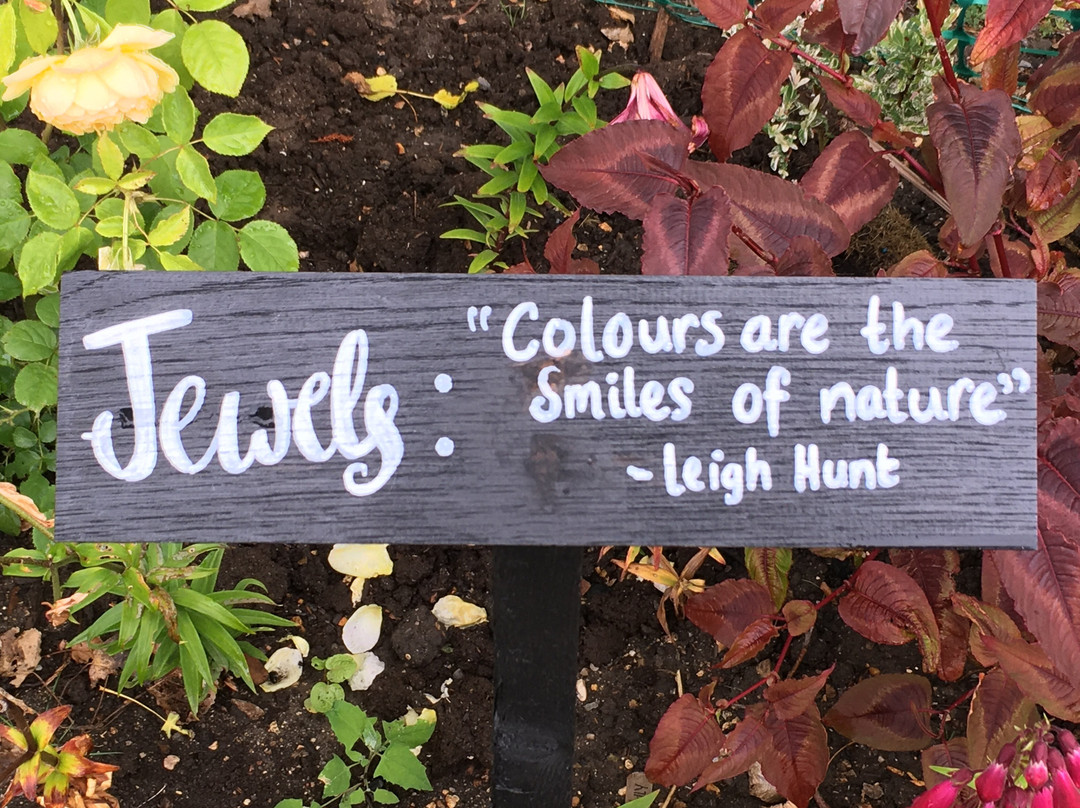 Jewels:
"Colours are the
Smiles of nature"
- Leigh Hunt